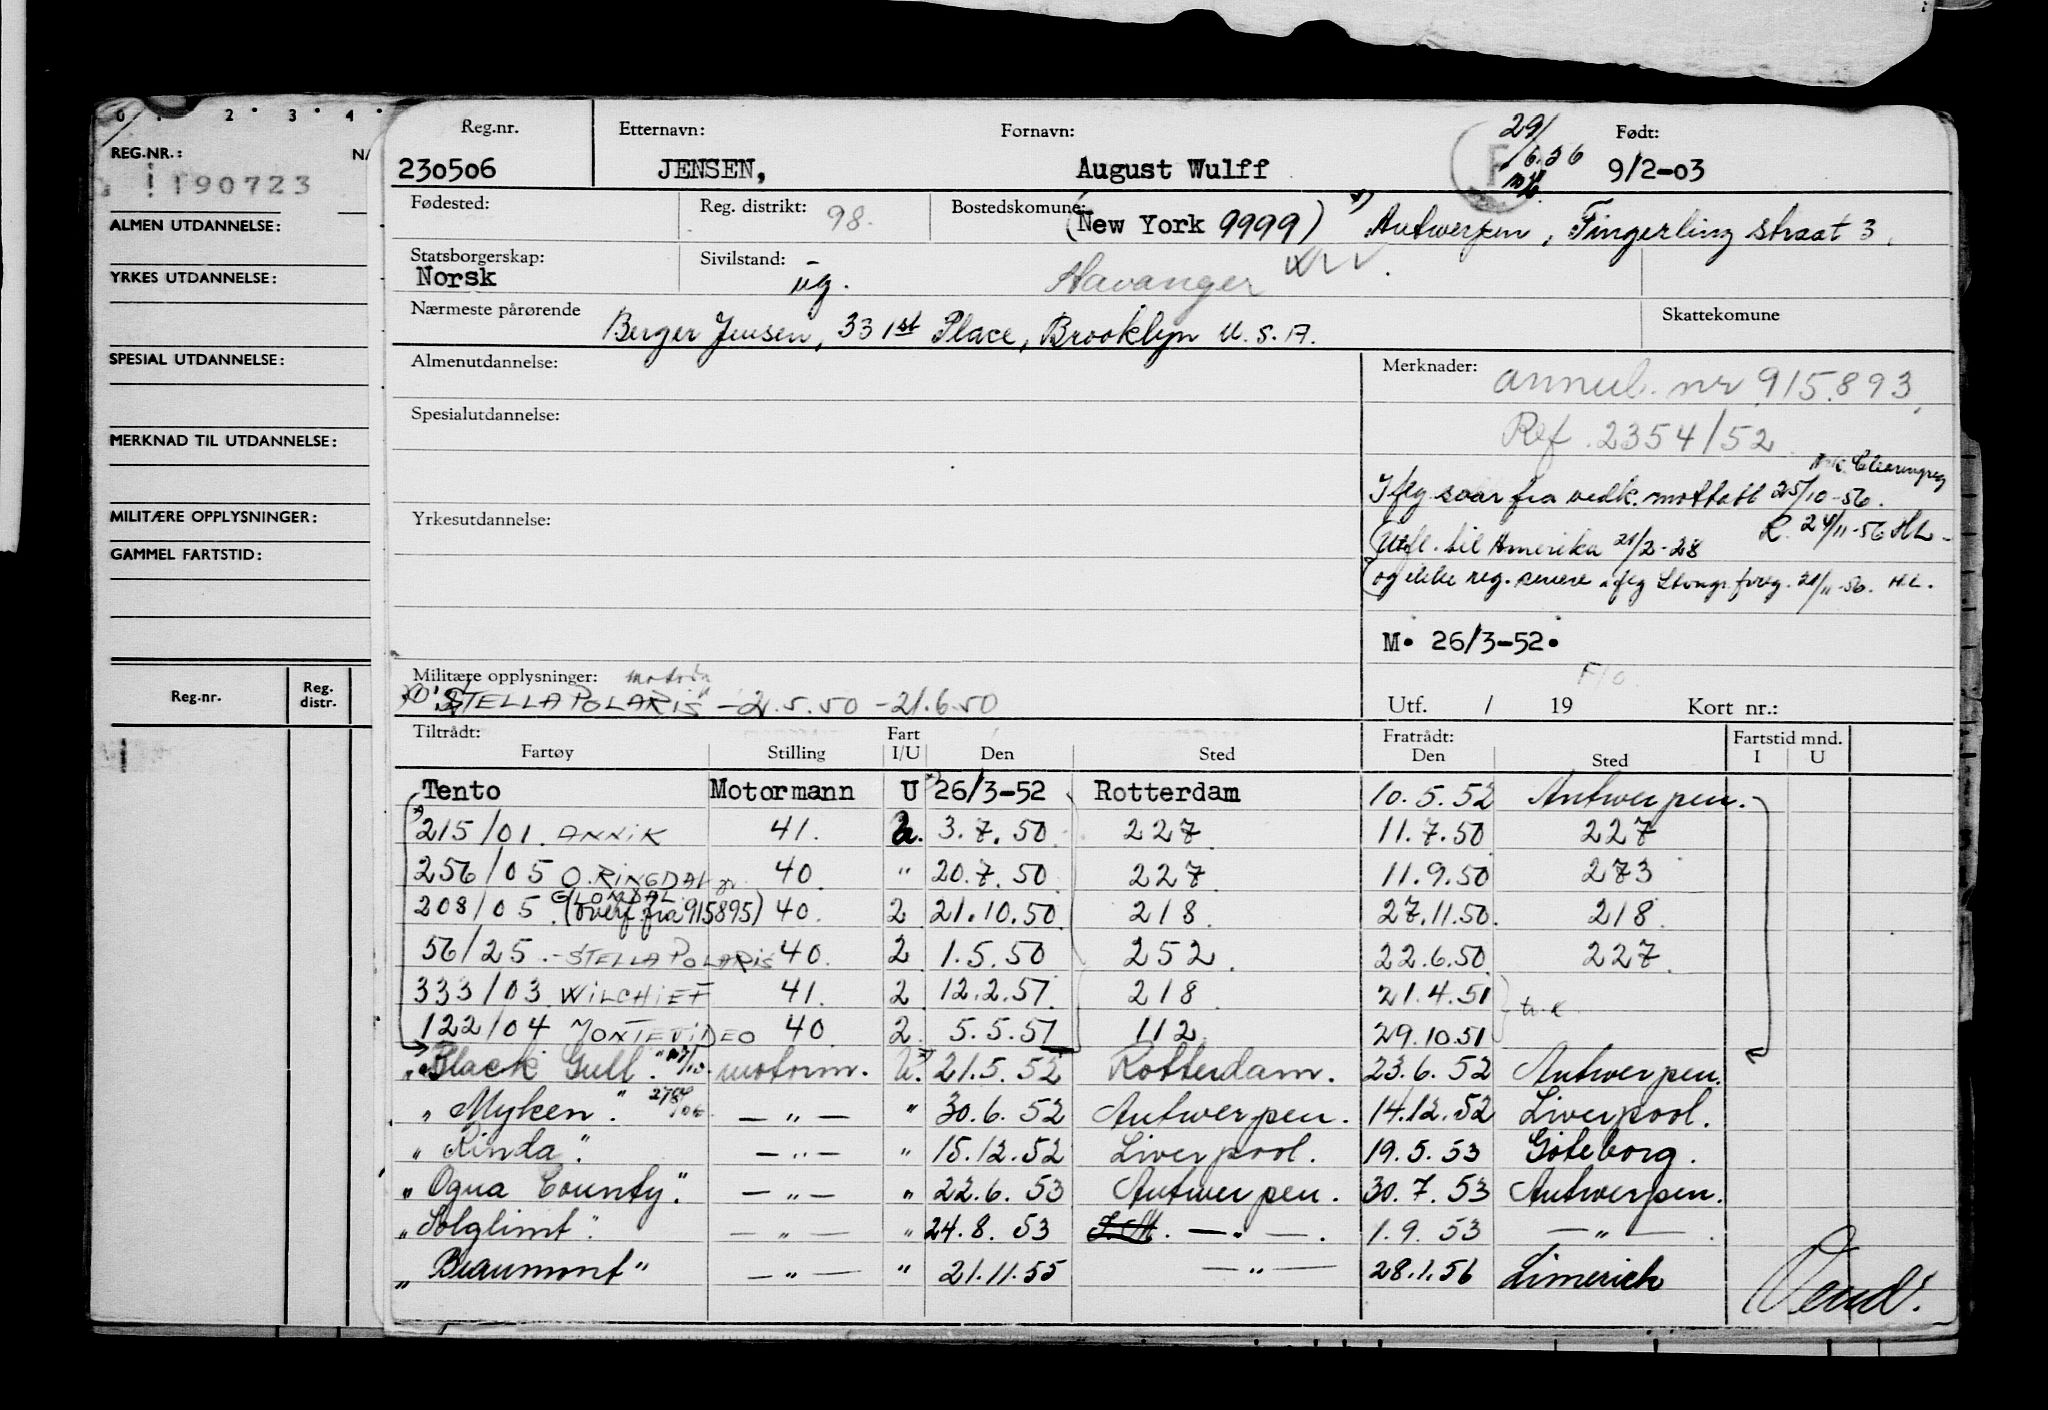 0 . 2 . 3 . 4 .
REG.NR.:
190723
ALMEN UTDANNELSE:
YRKES UTDANNELSE:
SPESIAL UTDANNELSE:
MERKNAD TIL UTDANNELSE:
MILITÆRE OPPLYSNINGER:
GAMMEL FARTSTID:
Reg.nr. Reg. distr.
Reg.nr. Etternavn: Fornavn: 29/6.56 Født:
230506 JENSEN, August Wulff F 9/2-03
Fødested: Reg. distrikt: 98. Bostedskomune: (New York 9999) *) Antwerpen, Fingerling straat 3.
Statsborgerskap: Sivilstand:
Norsk ug. Stavanger
Nærmeste pårørende Skattekomune
Berger Jensen, 33 1st Place, Brooklyn U.S.A.
Almenutdannelse: Merknader: annul. nr 915.893.
Spesialutdannelse: Ref. 2354/52
Clearingreg
Iflg svar fra vedk. mottatt 25/10-56.
Yrkesutdannelse: R. 24/11-56 HL-
(Utfl. til Amerika 21/2-28
og ikke reg. senere iflg Stvngr. freg. 21/11-56. H.L.
M. 26/3-52.
Militære opplysninger: F10
"STELLA POLARIS" - 21.5.50 - 21.6.50 Utf. / 19 Kort nr.:
Tiltrådt: Fart Fratrådt: Fartstid mnd.
Fartøy Stilling I/U Den Sted Den Sted I U
Tento Motormann U *) 26/3-52 Rotterdam 10.5.52 Antwerpen.
215/01. ANNIK 41. 2. 3.7.50 227 11.7.50 227
256/05 O. RINGDAL jr. 40. " 20.7.50 227. 11.9.50 273
GLOMDAL
208/05. (overf. fra 915895) 40. 2 21.10.50 218. 27.11.50. 218.
56/25. - STELLA POLARIS 40. 2 1.5.50 252. 22.6.50. 227.
333/03 WILCHIEF 41. 2 12.2.51. 218. 21.4.51
122/04 MONTEVIDEO 40. 2. 5.5.51 112. 29.10.51
"Black Gull." motorm. U. 21.5.52 Rotterdam. 23.6.52 Antwerpen.
"Myken." — " — " 30.6.52 Antwerpen. 14.12.52 Liverpool.
"Rinda". — " — " 15.12.52 Liverpool. 19.5.53 Göteborg.
"Ogna County". — " — " 22.6.53 Antwerpen. 30.7.53 Antwerpen.
"Solglimt". — " — " 24.8.53 — " —. 1.9.53 — " —.
"Beaumont" — " — " 21.11.55 — " — 28.1.56 Limerick
Vend.